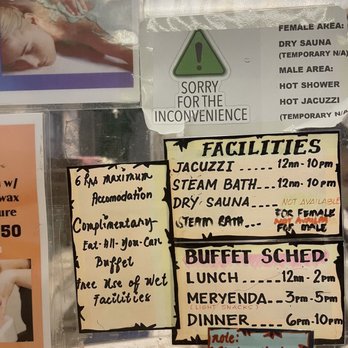 SORRY
FOR THE
INCONVENIENCE
FEMALE AREA:
DRY SAUNA
(TEMPORARY N/A)
MALE AREA:
HOT SHOWER
HOT JACUZZI
(TEMPORARY N/A)
w/
wax
ure
50
6 Hrs Maximum
Accomodation
Complimentary
Eat-All-You-Can
Buffet
Free Use of Wet
Facilities
FACILITIES
JACUZZI.......12nn-10pm
STEAM BATH....12nn-10pm
DRY SAUNA.... NOT AVAILABLE
FOR FEMALE
STEAM BATH.... NOT AVAILABLE
FOR MALE
BUFFET SCHED.
LUNCH.......12nn-2pm
MERYENDA....3pm-5pm
(LIGHT SNACKS)
DINNER.......6pm-10pm
note: